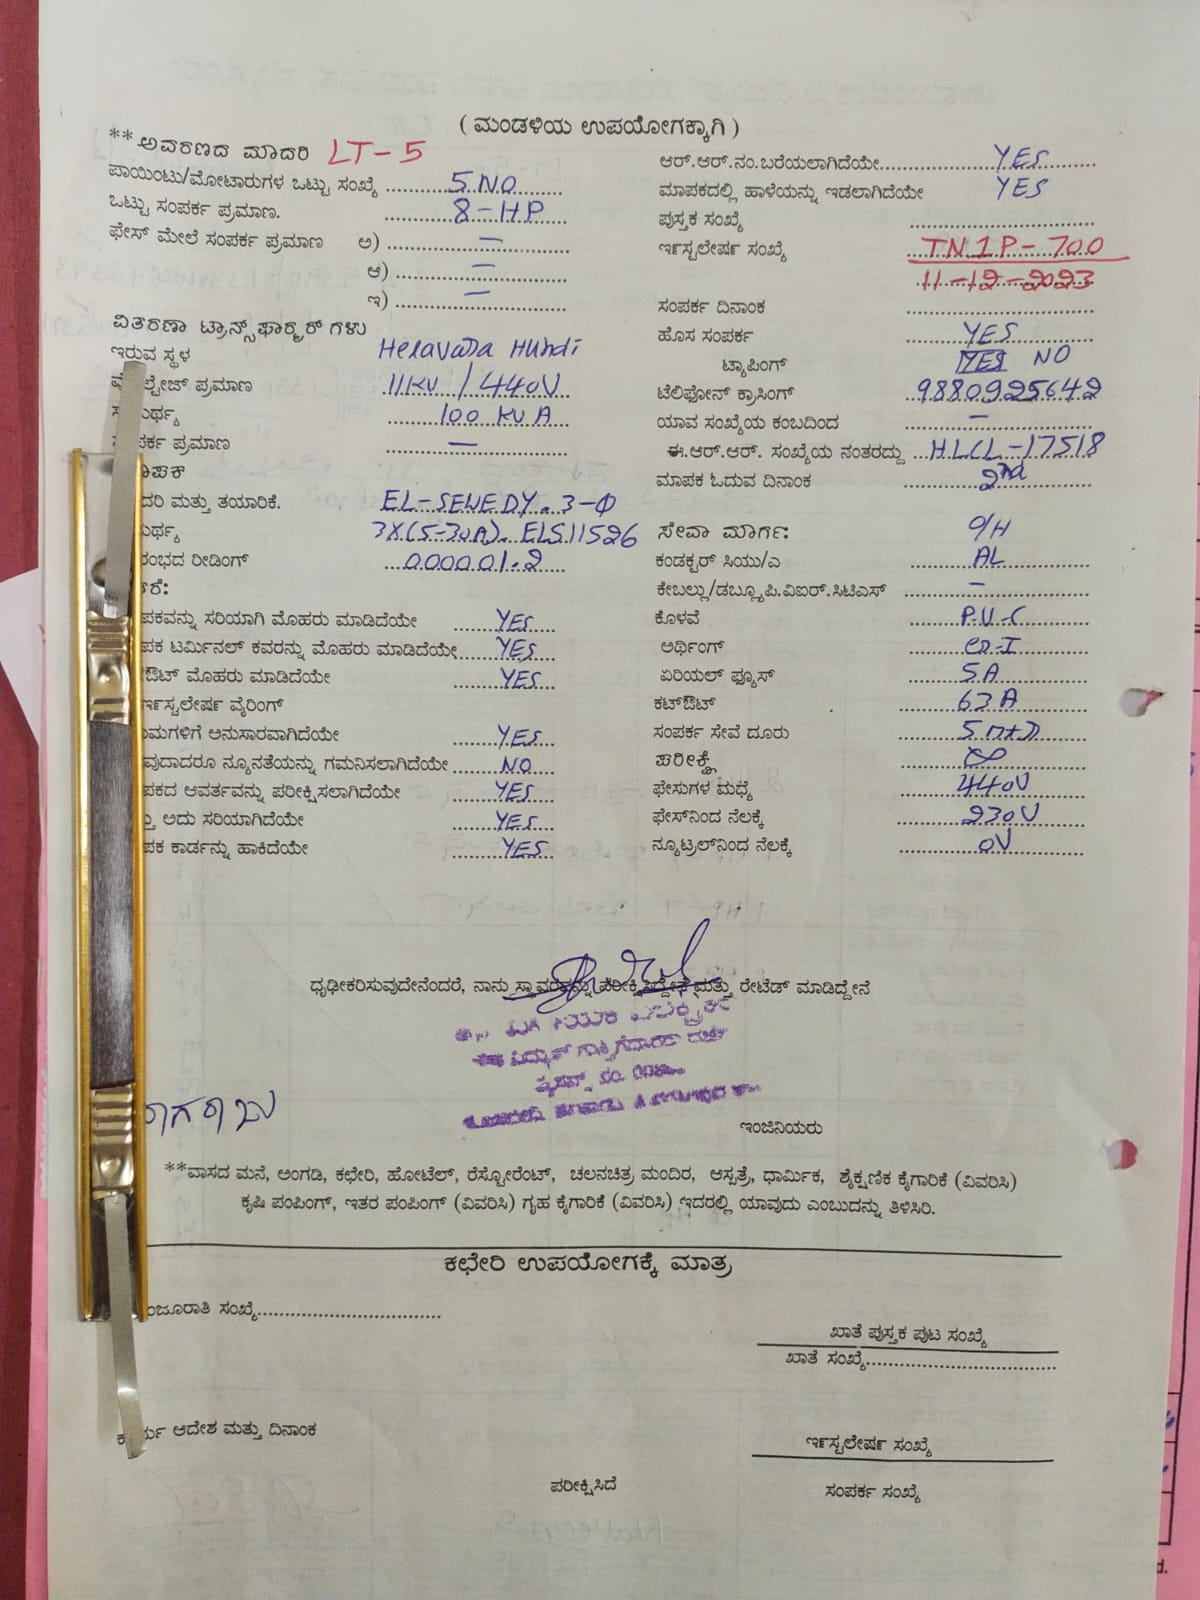 ( ಮಂಡಳಿಯ ಉಪಯೋಗಕ್ಕಾಗಿ )
**ಅವರಣದ ಮಾದರಿ LT-5
ಪಾಯಿಂಟು/ಮೋಟಾರುಗಳ ಒಟ್ಟು ಸಂಖ್ಯೆ 5 NO
ಒಟ್ಟು ಸಂಪರ್ಕ ಪ್ರಮಾಣ. 8-HP
ಫೇಸ್ ಮೇಲೆ ಸಂಪರ್ಕ ಪ್ರಮಾಣ ಅ) —
ಆ) —
ಇ) —
ವಿತರಣಾ ಟ್ರಾನ್ಸ್‌ಫಾರ್‍ಮರ್ ಗಳು
ಇರುವ ಸ್ಥಳ Heravara Hundi
ಪ್ರಮಾಣ 11KV / 440V
100 KVA
ಪ್ರಮಾಣ —
ಮತ್ತು ತಯಾರಿಕೆ. EL-SEWEDY. 3-Φ
3X(5-30A). ELS11526
ರೀಡಿಂಗ್ 00000 1.2
ಸರಿಯಾಗಿ ಮೊಹರು ಮಾಡಿದೆಯೇ YES
ಟರ್ಮಿನಲ್ ಕವರನ್ನು ಮೊಹರು ಮಾಡಿದೆಯೇ YES
ಮೊಹರು ಮಾಡಿದೆಯೇ YES
ವೈರಿಂಗ್
ಅನುಸಾರವಾಗಿದೆಯೇ YES
ನ್ಯೂನತೆಯನ್ನು ಗಮನಿಸಲಾಗಿದೆಯೇ NO
ಆವರ್ತವನ್ನು ಪರೀಕ್ಷಿಸಲಾಗಿದೆಯೇ YES
ಅದು ಸರಿಯಾಗಿದೆಯೇ YES
ಕಾರ್ಡನ್ನು ಹಾಕಿದೆಯೇ YES
ಆರ್.ಆರ್.ನಂ.ಬರೆಯಲಾಗಿದೆಯೇ YES
ಮಾಪಕದಲ್ಲಿ ಹಾಳೆಯನ್ನು ಇಡಲಾಗಿದೆಯೇ YES
ಪುಸ್ತಕ ಸಂಖ್ಯೆ
ಇನ್‌ಸ್ಟಲೇಷನ್ ಸಂಖ್ಯೆ TN1P-700
11-12-2023
ಸಂಪರ್ಕ ದಿನಾಂಕ
ಹೊಸ ಸಂಪರ್ಕ YES
ಟ್ಯಾಪಿಂಗ್ YES NO
ಟೆಲಿಫೋನ್ ಕ್ರಾಸಿಂಗ್ 9880925642
ಯಾವ ಸಂಖ್ಯೆಯ ಕಂಬದಿಂದ —
ಈ.ಆರ್.ಆರ್. ಸಂಖ್ಯೆಯ ನಂತರದ್ದು HLCL-17518
ಮಾಪಕ ಓದುವ ದಿನಾಂಕ 2nd
ಸೇವಾ ಮಾರ್ಗ: O/H
ಕಂಡಕ್ಟರ್ ಸಿಯು/ಎ AL
ಕೇಬಲ್ಲು/ಡಬ್ಲ್ಯೂಪಿ.ವಿಐರ್.ಸಿಟಿಎಸ್ —
ಕೊಳವೆ P.V.C
ಅರ್ಥಿಂಗ್
ಏರಿಯಲ್ ಫ್ಯೂಸ್ 5A
ಕಟ್‌ಔಟ್ 63 A
ಸಂಪರ್ಕ ಸೇವೆ ದೂರು
ಪರೀಕ್ಷೆ ∞
ಫೇಸುಗಳ ಮಧ್ಯೆ 440V
ಫೇಸ್‌ನಿಂದ ನೆಲಕ್ಕೆ 230V
ನ್ಯೂಟ್ರಲ್‌ನಿಂದ ನೆಲಕ್ಕೆ 0V
ಧೃಢೀಕರಿಸುವುದೇನೆಂದರೆ, ನಾನು ಸ್ಥಾವರವನ್ನು ಪರೀಕ್ಷಿಸಿದ್ದೇನೆ ಮತ್ತು ರೇಟೆಡ್ ಮಾಡಿದ್ದೇನೆ
ಇಂಜಿನಿಯರು
**ವಾಸದ ಮನೆ, ಅಂಗಡಿ, ಕಛೇರಿ, ಹೋಟೆಲ್, ರೆಸ್ಟೋರೆಂಟ್, ಚಲನಚಿತ್ರ ಮಂದಿರ, ಆಸ್ಪತ್ರೆ, ಧಾರ್ಮಿಕ, ಶೈಕ್ಷಣಿಕ ಕೈಗಾರಿಕೆ (ವಿವರಿಸಿ)
ಕೃಷಿ ಪಂಪಿಂಗ್, ಇತರ ಪಂಪಿಂಗ್ (ವಿವರಿಸಿ) ಗೃಹ ಕೈಗಾರಿಕೆ (ವಿವರಿಸಿ) ಇದರಲ್ಲಿ ಯಾವುದು ಎಂಬುದನ್ನು ತಿಳಿಸಿರಿ.
ಕಛೇರಿ ಉಪಯೋಗಕ್ಕೆ ಮಾತ್ರ
ಸಂಖ್ಯೆ
ಖಾತೆ ಪುಸ್ತಕ ಪುಟ ಸಂಖ್ಯೆ
ಖಾತೆ ಸಂಖ್ಯೆ
ಆದೇಶ ಮತ್ತು ದಿನಾಂಕ
ಇನ್‌ಸ್ಟಲೇಷನ್ ಸಂಖ್ಯೆ
ಪರೀಕ್ಷಿಸಿದೆ
ಸಂಪರ್ಕ ಸಂಖ್ಯೆ